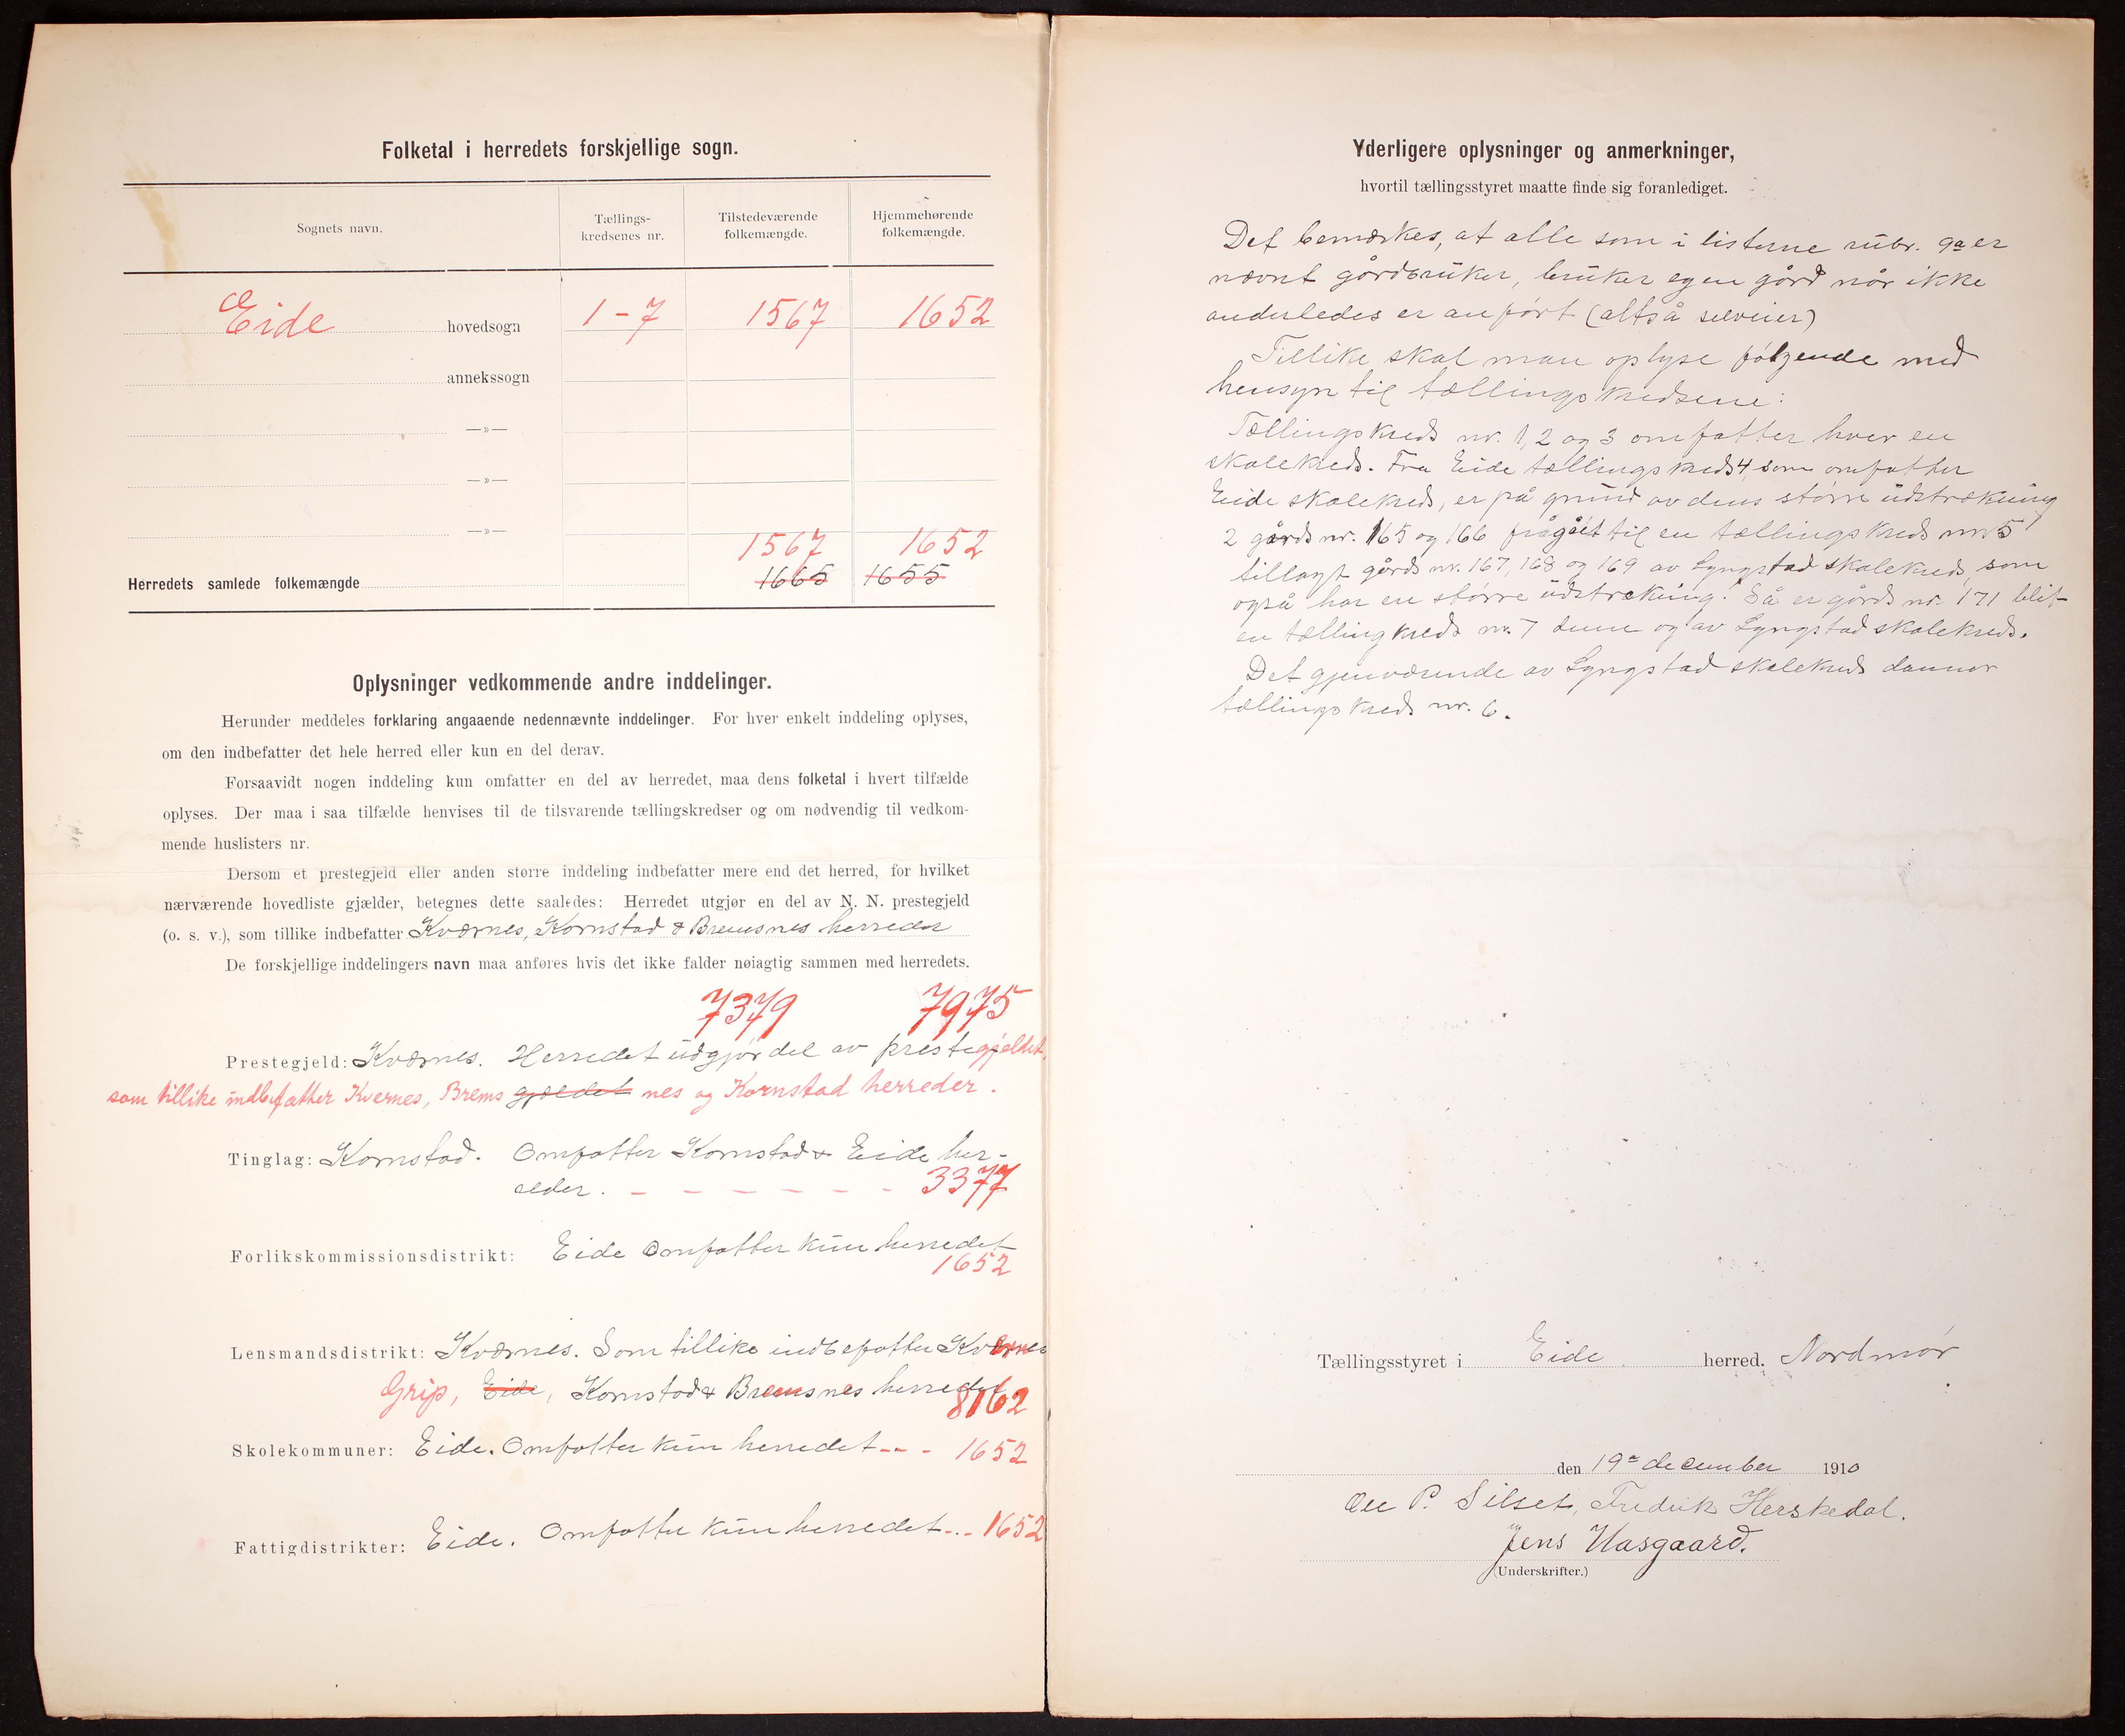 Folketal i herredets forskjellige sogn.
Sognets navn. Tællings-kredsenes nr. Tilstedeværende folkemængde. Hjemmehørende folkemængde.
Eide hovedsogn 1-7 1567 1652
annekssogn
—»—
—»—
—»—
1567 1652
Herredets samlede folkemængde 1665 1655
Oplysninger vedkommende andre inddelinger.
Herunder meddeles forklaring angaaende nedennævnte inddelinger. For hver enkelt inddeling oplyses,
om den indbefatter det hele herred eller kun en del derav.
Forsaavidt nogen inddeling kun omfatter en del av herredet, maa dens folketal i hvert tilfælde
oplyses. Der maa i saa tilfælde henvises til de tilsvarende tællingskredser og om nødvendig til vedkom-
mende huslisters nr.
Dersom et prestegjeld eller anden større inddeling indbefatter mere end det herred, for hvilket
nærværende hovedliste gjælder, betegnes dette saaledes: Herredet utgjør en del av N. N. prestegjeld
(o. s. v.), som tillike indbefatter Kværnes, Kornstad & Bremsnes herreder
De forskjellige inddelingers navn maa anføres hvis det ikke falder nøiagtig sammen med herredets.
7379 7975
Prestegjeld: Kværnes. Herredet udgjør del av prestegjeldet,
som tillike indbefatter Kvernes, Brems gjældet nes og Kornstad herreder.
Tinglag: Kornstad. Omfatter Kornstad & Eide her-
reder. - - - - - - - 3377
Forlikskommissionsdistrikt: Eide omfatter kun herredet
1652
Lensmandsdistrikt: Kværnes. Som tillike indbefatter Kvernes
Grip, Eide, Kornstad & Bremsnes herreder
8162
Skolekommuner: Eide. Omfatter kun herredet - - - 1652
Fattigdistrikter: Eide. Omfatter kun herredet - - - 1652
Yderligere oplysninger og anmerkninger,
hvortil tællingsstyret maatte finde sig foranlediget.
Det bemærkes, at alle som i listerne rubr. 9a er
nævnt gårdbruker, bruker egen gård når ikke
anderledes er anført (altså selveier)
Tillike skal man oplyse følgende med
hensyn til tællingskredsene:
Tællingskreds nr. 1, 2 og 3 omfatter hver en
skolekreds. Fra Eide tællingskreds 4 som omfatter
Eide skolekreds, er på grund av dens større udstrækning
2 gårds nr. 165 og 166 frågået til en tællingskreds nr. 5
tillagt gårds nr. 167, 168 og 169 av Lyngstad skolekreds, som
også har en større udstrækning. Så er gårds nr. 171 blit
en tællingkreds nr. 7 denne og av Lyngstad skolekreds.
Det gjenværende av Lyngstad skolekreds danner
tællingskreds nr. 6.
Tællingsstyret i Eide herred. Nordmør
den 19de december 1910
Ole P. Silset, Fredrik Herskedal.
Jens Hasgaard.
(Underskrifter.)